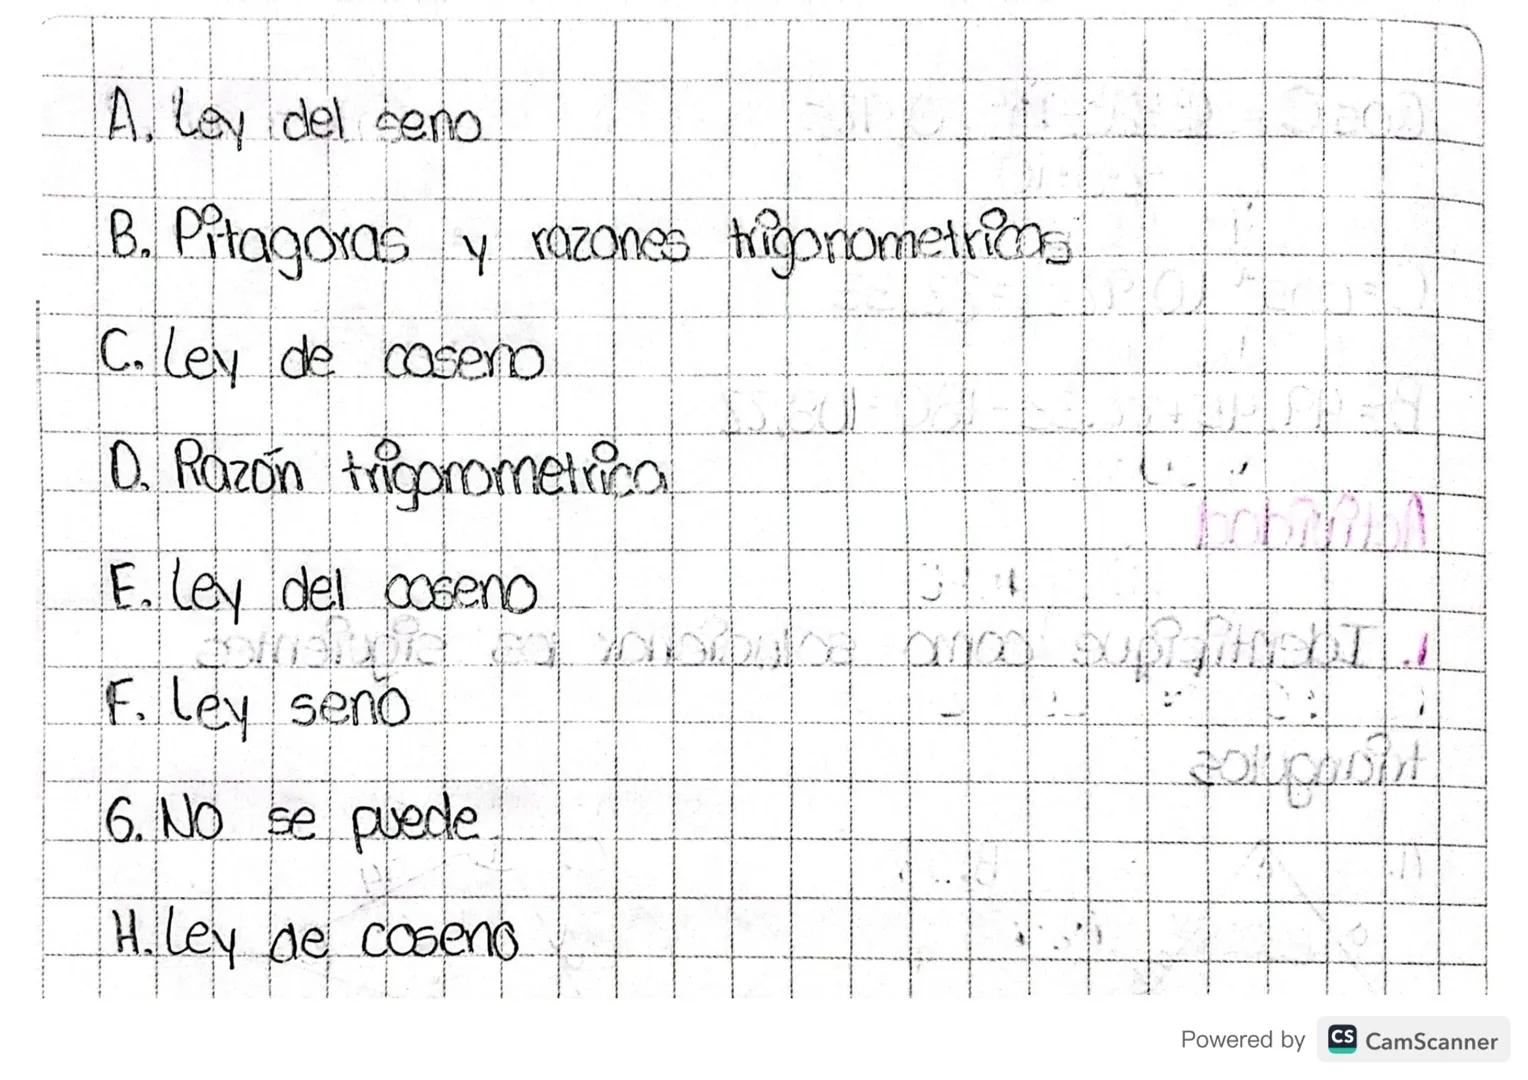 A. Ley del seno
B. Pitagoras y razones trigonometricas
C. Ley de coseno
D. Razón trigonometrica
E. Ley del coseno
F. Ley seno
G. NO se puede
H. Ley de coseno
Powered by CS CamScanner